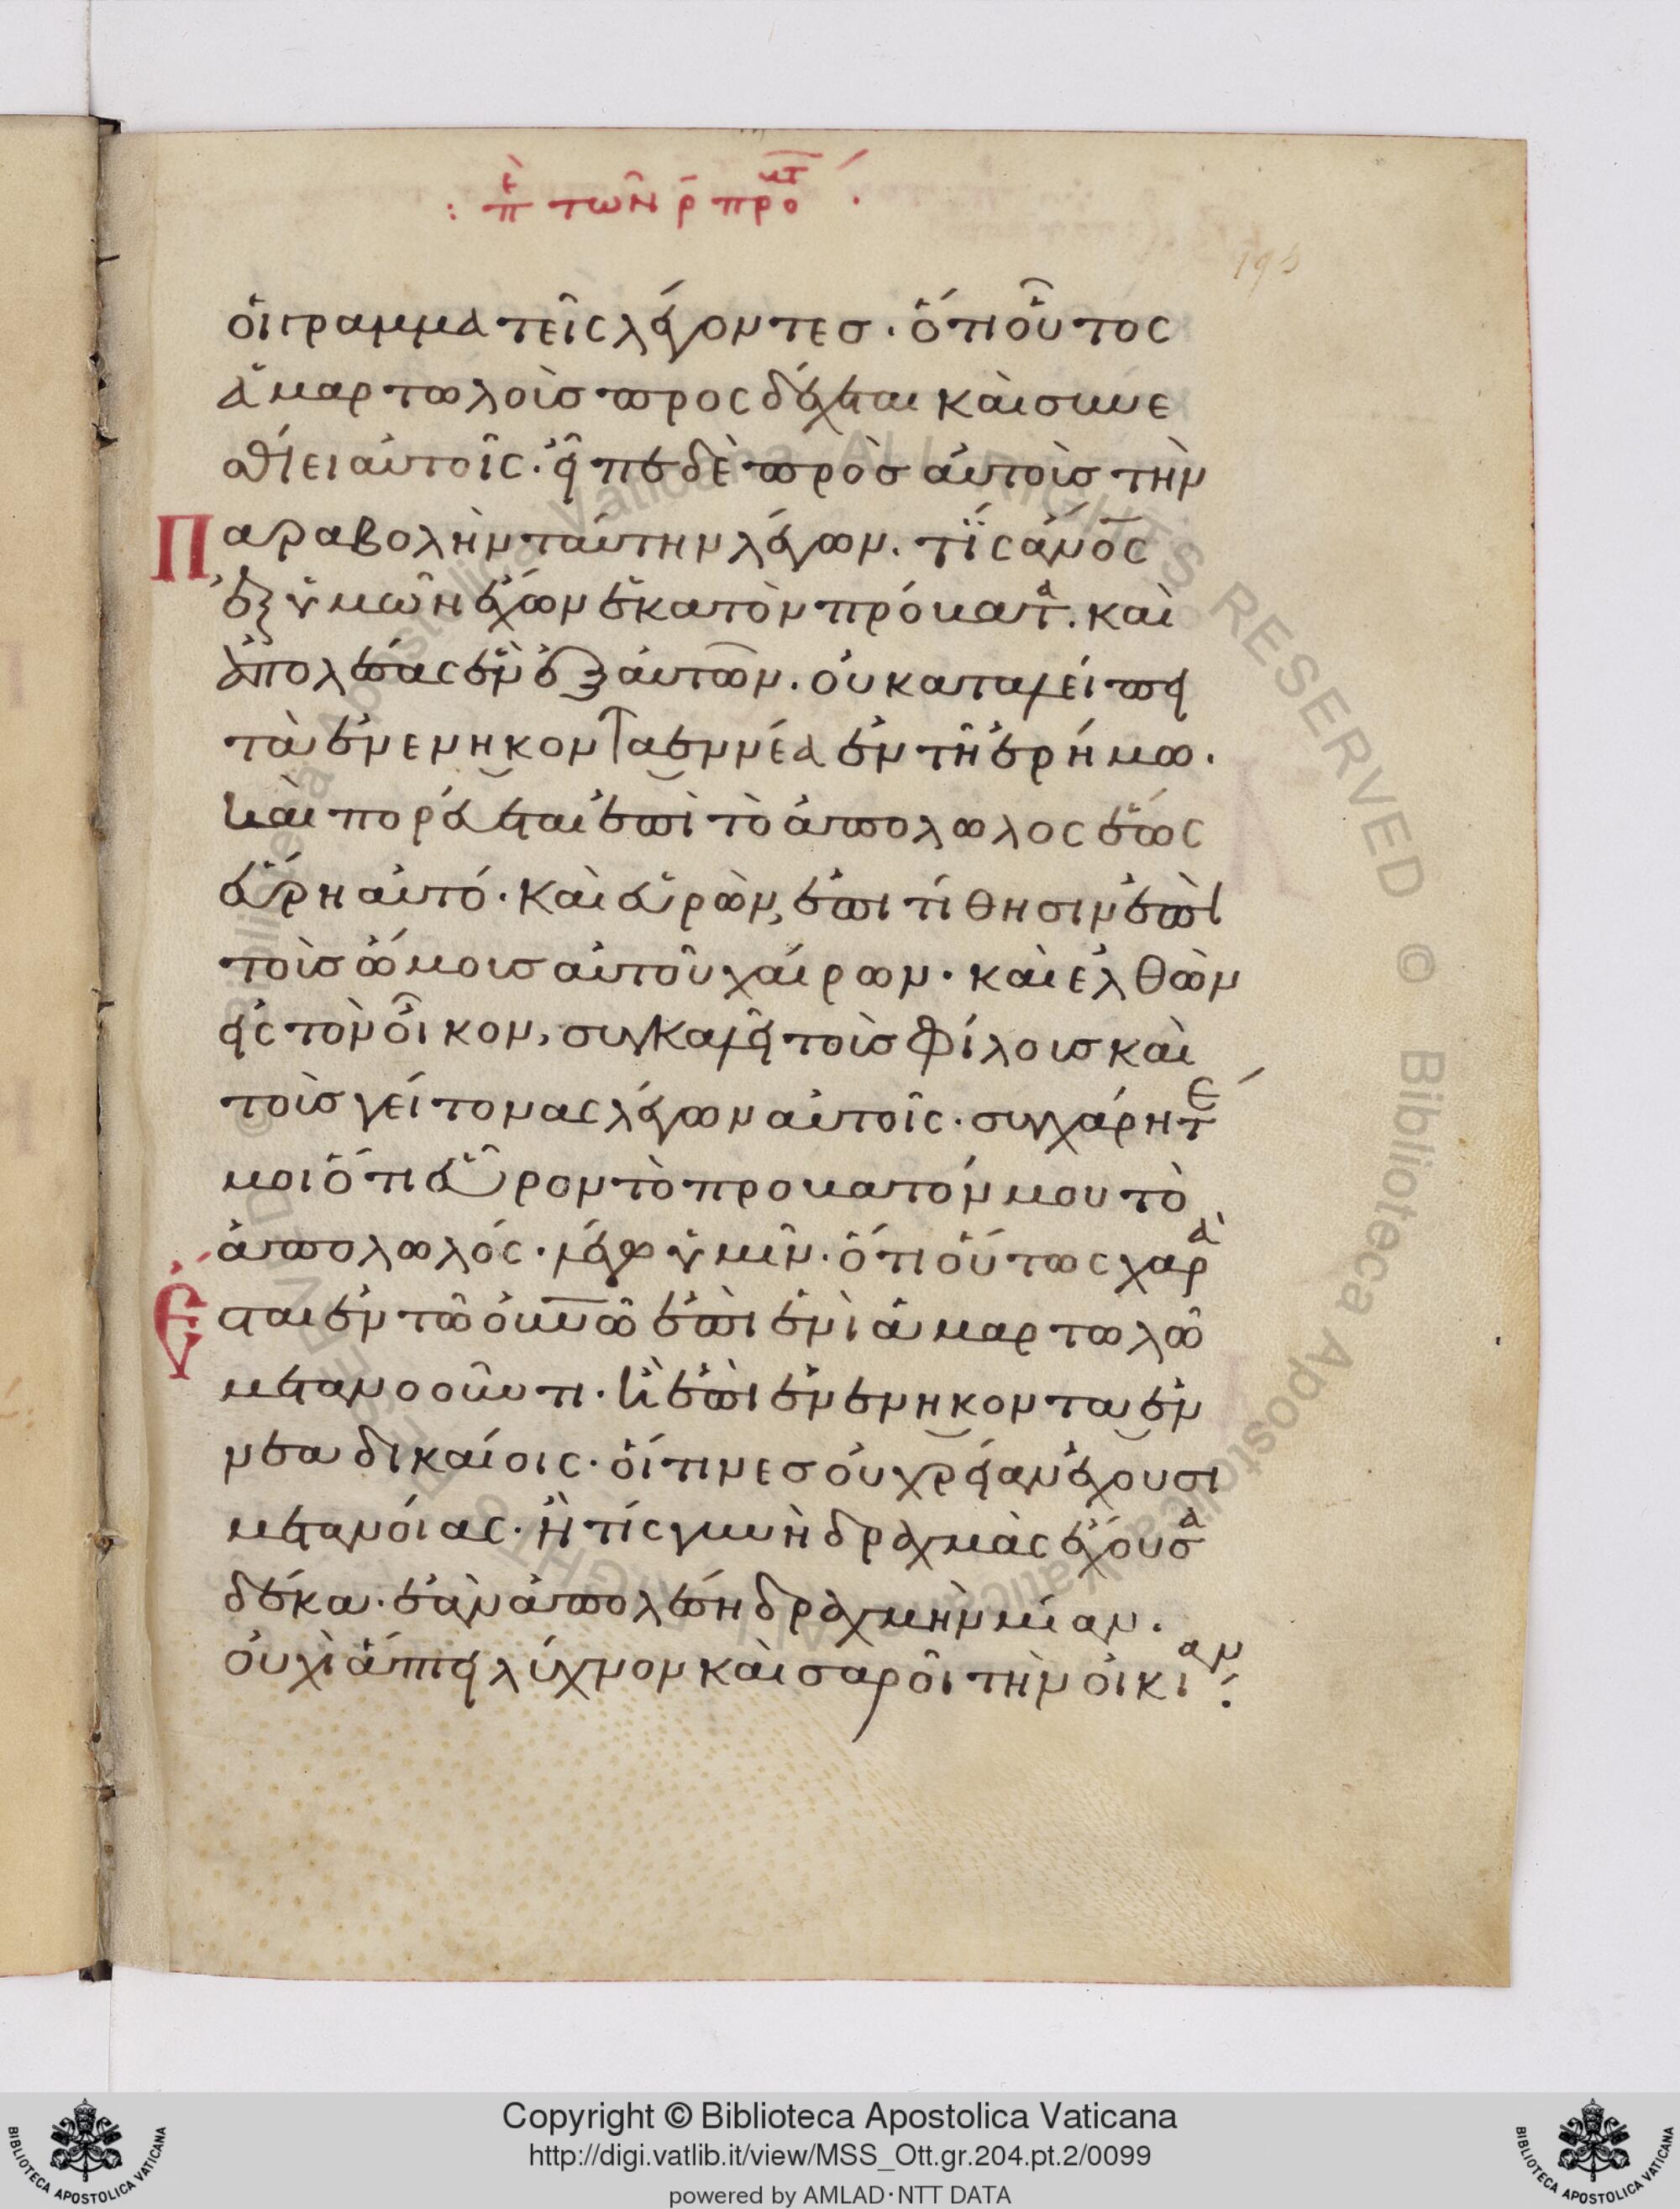 : π̅ὲ τῶν ρ̅ προ̅ατ .
195
ὁι γραμματεῖς λέγοντεσ · ὅτι οὗτος
ἁμαρτωλοὺσ προσδέχεται καὶ συνε
σθίει αὐτοῖς · εἶπε δὲ πρὸσ αὐτοὺσ τὴν
Παραβολὴν ταύτην λέγων . τίς ἄν̅ο̅ς
ἐξ ὑμῶν ἔχων ἑκατὸν πρόβατα . καὶ
ἀπολέσας ἓν ἐξ αὐτῶν . οὐ καταλείπει
τὰ ἐνενηκονταεννέα ἐν τῆ ἐρήμω .
καὶ πορεύεται ἐπὶ τὸ ἀπολωλος ἕως
εὕρη αὐτό · καὶ εὑρὼν, ἐπιτίθησιν ἐπὶ
τοὺσ ὤμουσ αὐτοῦ χαίρων · καὶ ἐλθὼν
εἰς τὸν οἶκον, συγκαλεῖ τοὺσ φίλουσ καὶ
τοὺσ γείτονας λέγων αὐτοῖς · συγχάρητε
μοι ὅτι εὗρον τὸ προβατόν μου τὸ
ἀπολωλός · λέγω ὑμῖν · ὅτι οὕτως χαρὰ
Ἔσται ἐν τῶ οὐ̅ν̅ῶ ἐπὶ ἑνὶ ἁμαρτωλῶ
μετανοοῦντι · ἢ ἐπὶ ἐνενηκοντα ἐν
νέα δικαίοις · οἵτινεσ οὐ χρείαν ἔχουσι
μετανοίας · Ἢ τίς γυνὴ δραχμὰς ἔχουσα
δέκα · ἐὰν ἀπολέση δραχμὴν μίαν .
οὐχὶ ἅπτει λύχνον καὶ σαροῖ τὴν οἰκίαν :
Copyright © Biblioteca Apostolica Vaticana
http://digi.vatlib.it/view/MSS_Ott.gr.204.pt.2/0099
powered by AMLAD·NTT DATA